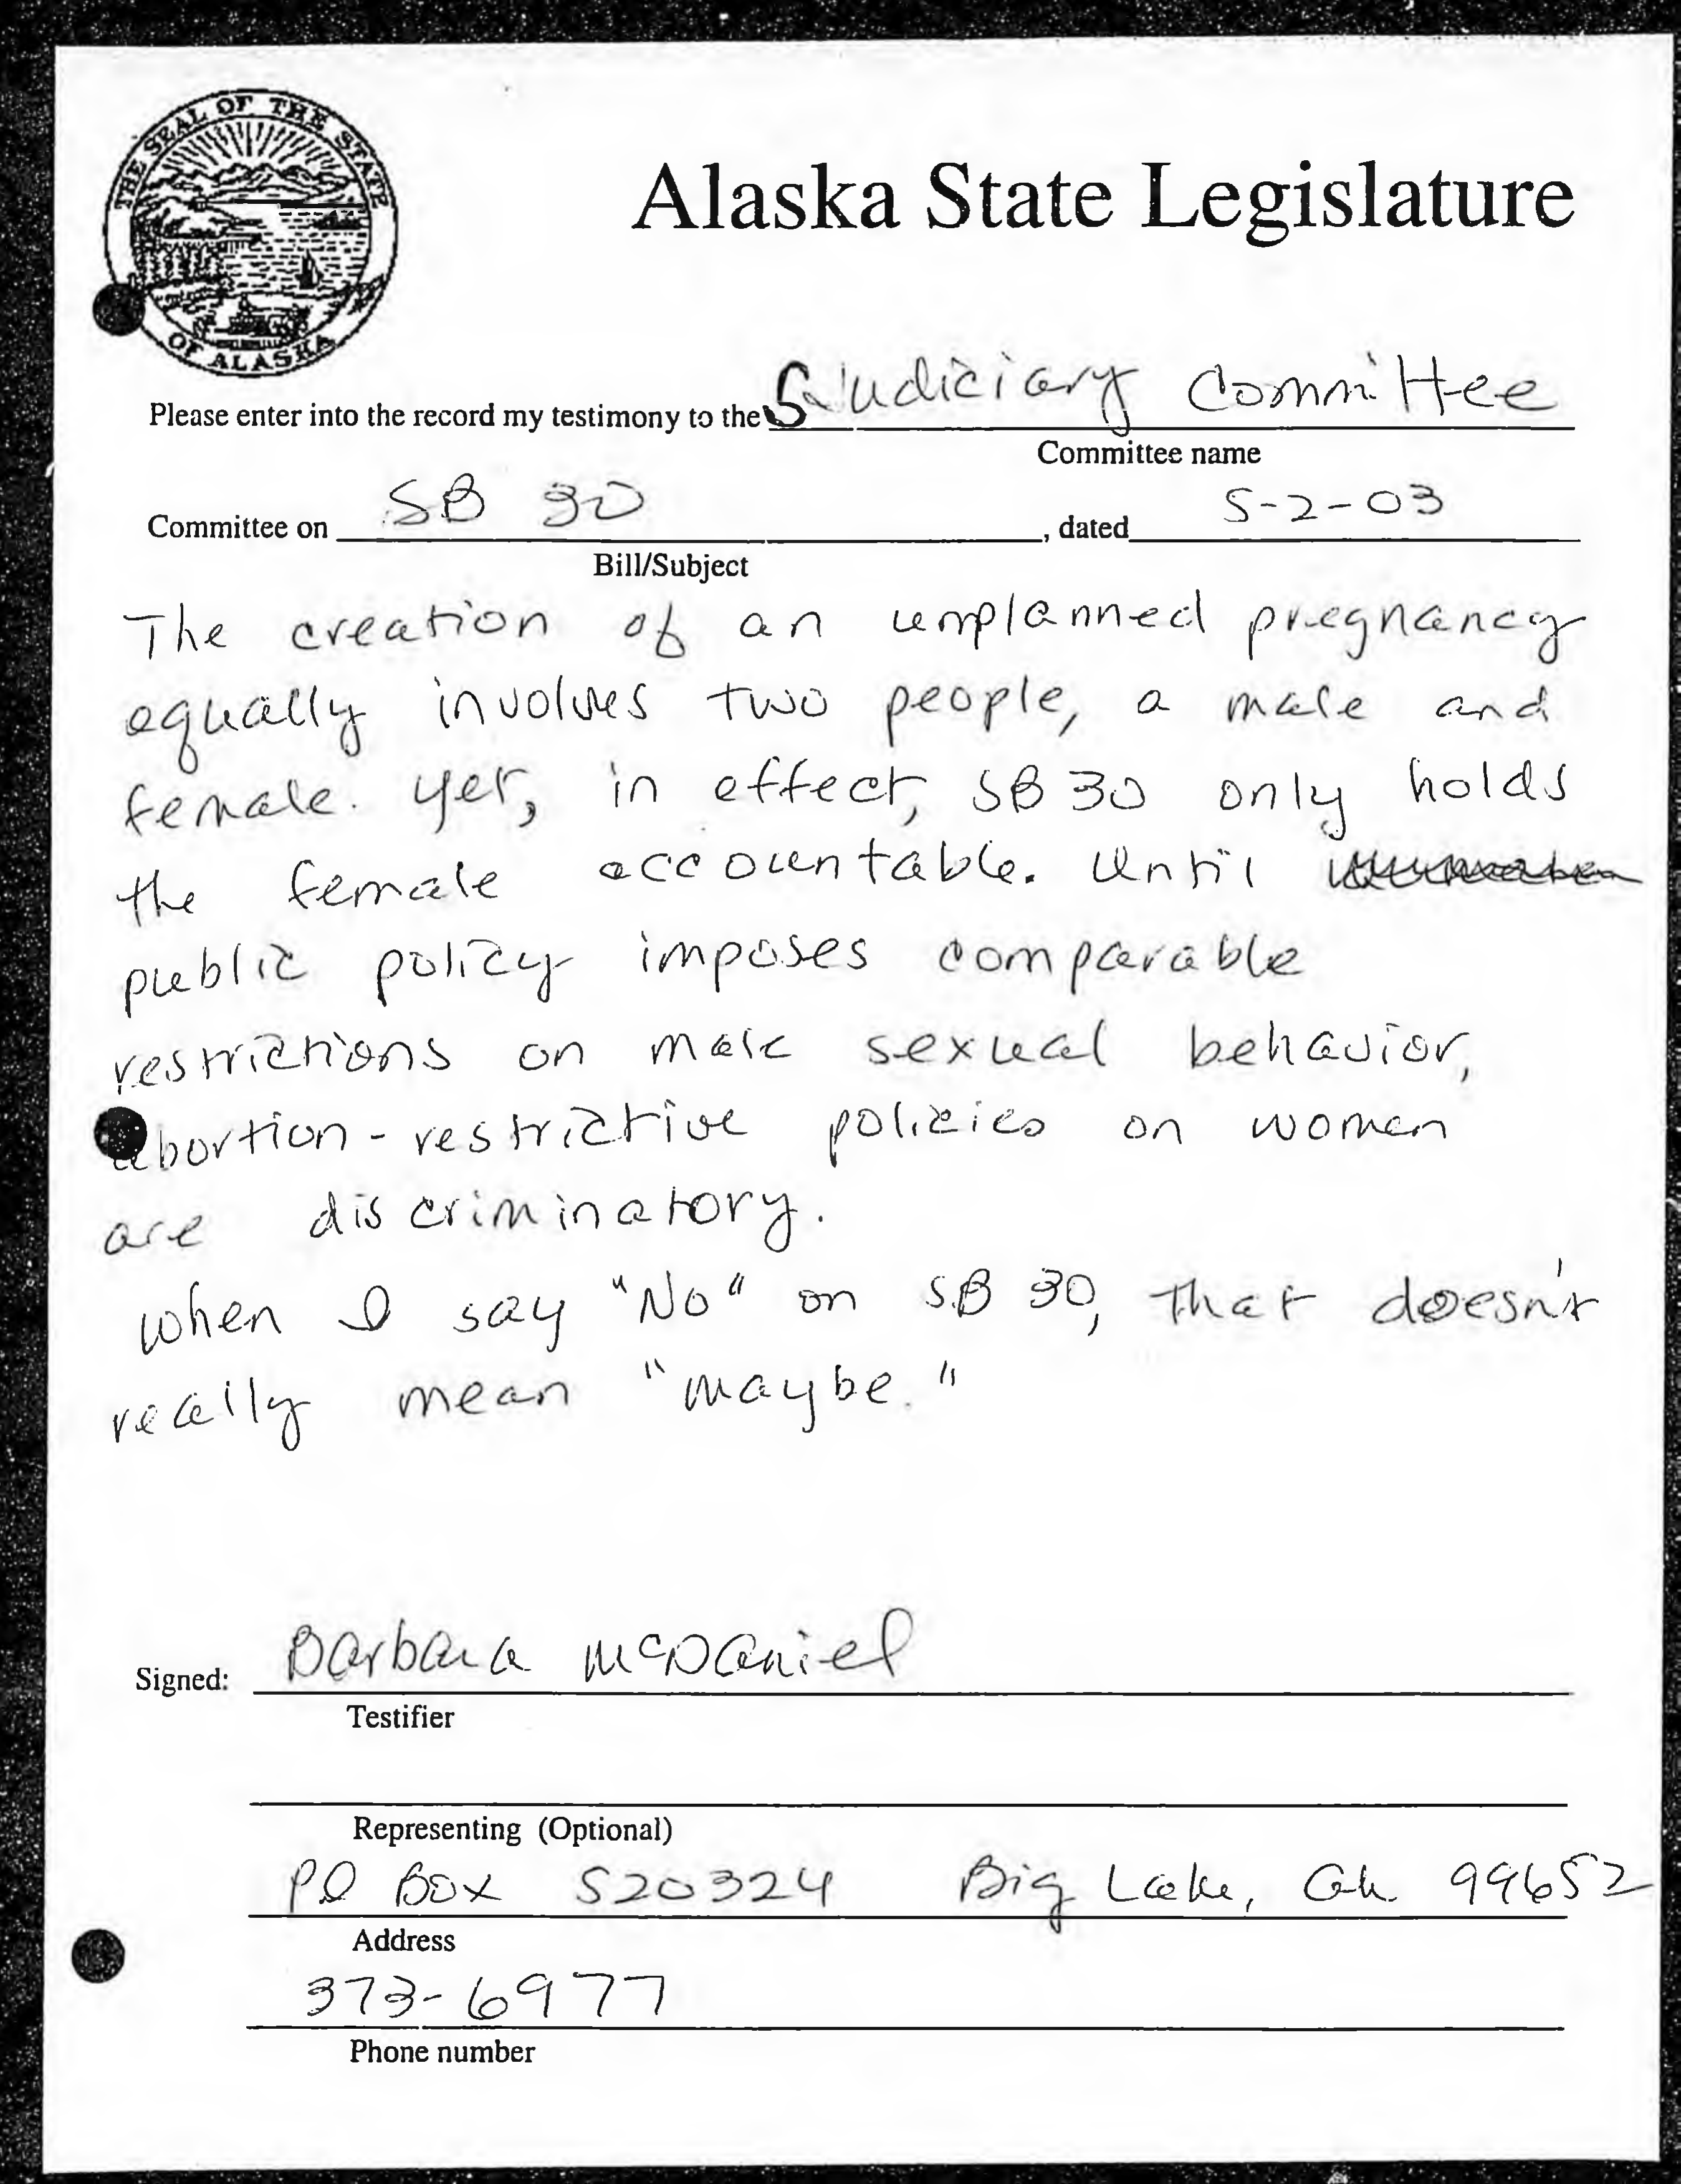 THE SEAL OF THE STATE
OF ALASKA
Alaska State Legislature
Please enter into the record my testimony to the S Judiciary Committee
Committee name
Committee on SB 30, dated 5-2-03
Bill/Subject
The creation of an unplanned pregnancy
equally involves two people, a male and
female. Yet, in effect, SB 30 only holds
the female accountable. Until
public policy imposes comparable
restrictions on male sexual behavior,
abortion-restrictive policies on women
are discriminatory.
When I say "No" on SB 30, that doesn't
really mean "maybe."
Signed: Barbara McDaniel
Testifier
Representing (Optional)
PO Box 520324 Big Lake, Ak 99652
Address
373-6977
Phone number